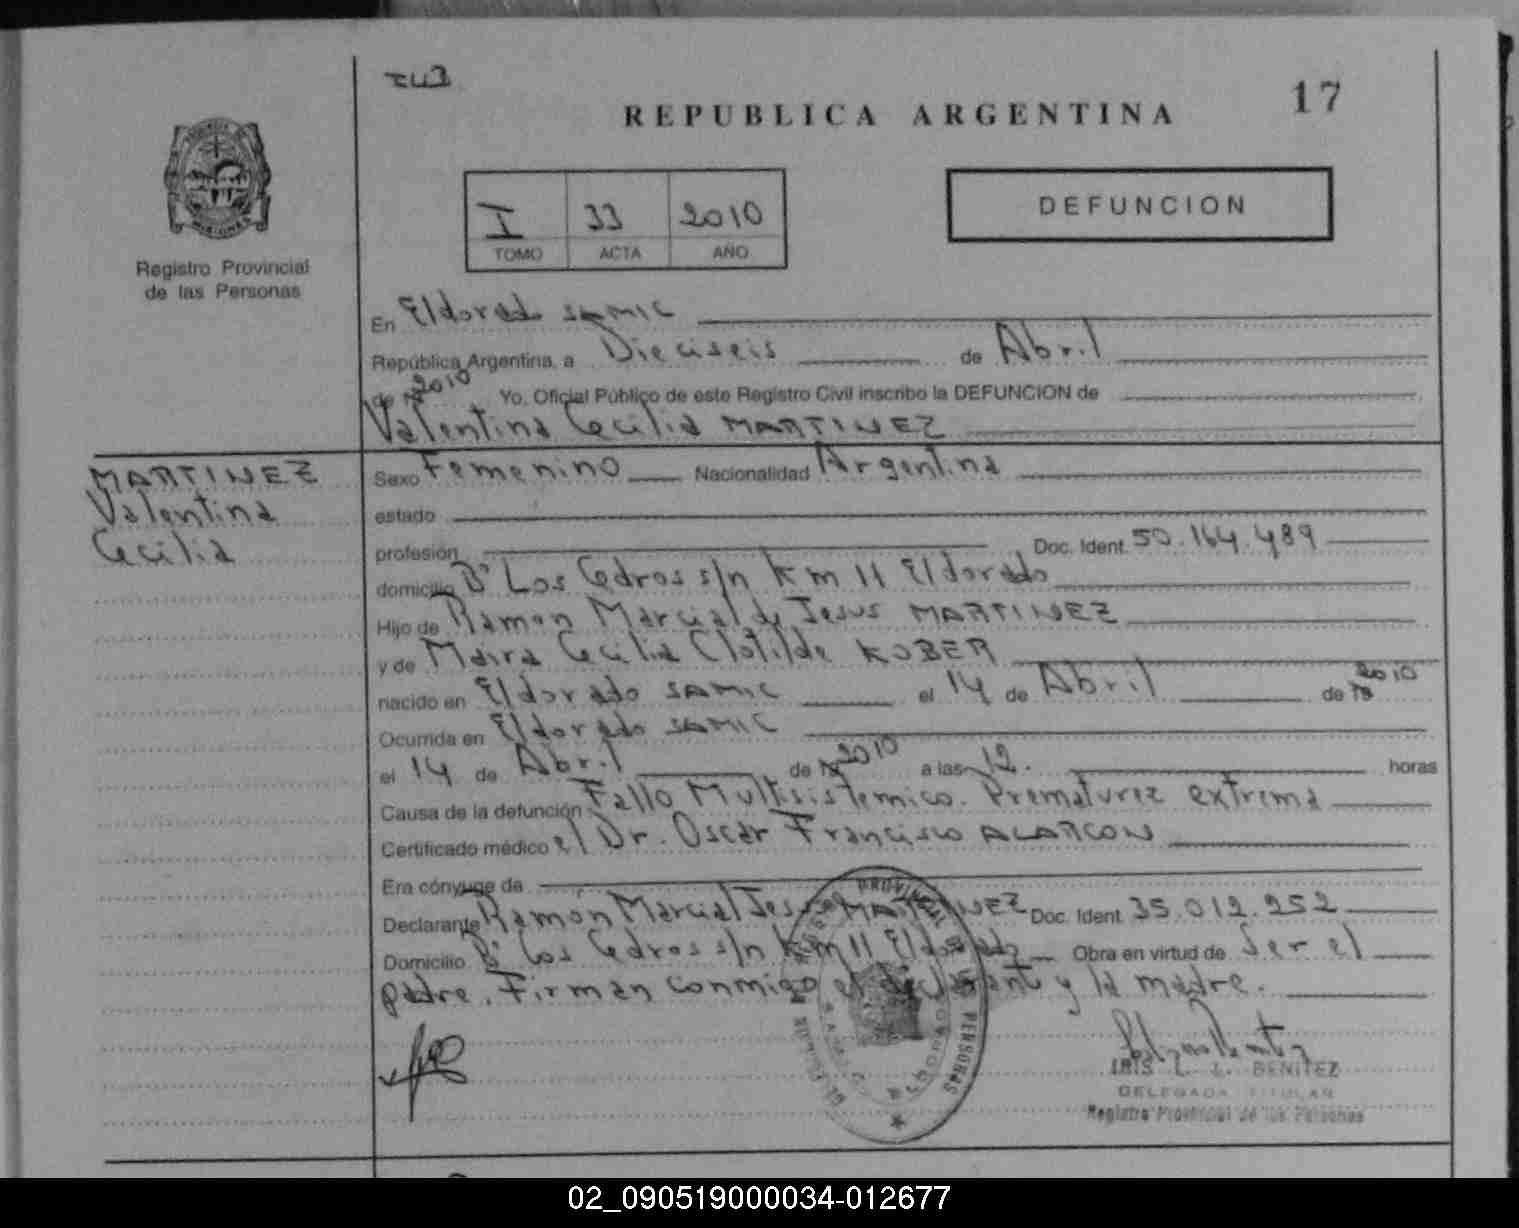 REPUBLICA ARGENTINA
17
I 33 2010
TOMO ACTA AÑO
DEFUNCION
Registro Provincial
de las Personas
En Eldorado SAMIC
República Argentina, a Dieciseis de Abril
de 2010 Yo, Oficial Público de este Registro Civil inscribo la DEFUNCION de
Valentina Cecilia MARTINEZ
MARTINEZ
Valentina
Cecilia
Sexo Femenino Nacionalidad Argentina
estado
profesión Doc. Ident. 50.164.489
domicilio Bº Los Cedros s/n Km 11 Eldorado
Hijo de Ramon Marcial de Jesus MARTINEZ
y de Maira Cecilia Clotilde KOBER
nacido en Eldorado SAMIC el 14 de Abril de 19 2010
Ocurrida en Eldorado SAMIC
el 14 de Abril de 19 2010 a las 12. horas
Causa de la defunción Fallo Multisistemico. Prematurez extrema
Certificado médico el Dr. Oscar Francisco ALARCON
Era cónyuge de
Declarante Ramón Marcial Jesus MARTINEZ Doc. Ident. 35.012.252
Domicilio Bº Los Cedros s/n Km 11 Eldorado Obra en virtud de Ser el
padre. Firman conmigo el declarante y la madre.
IRIS L. L. BENITEZ
DELEGADA TITULAR
Registro Provincial de las Personas
PROVINCIAL DE LAS PERSONAS
ELDORADO
02_090519000034-012677